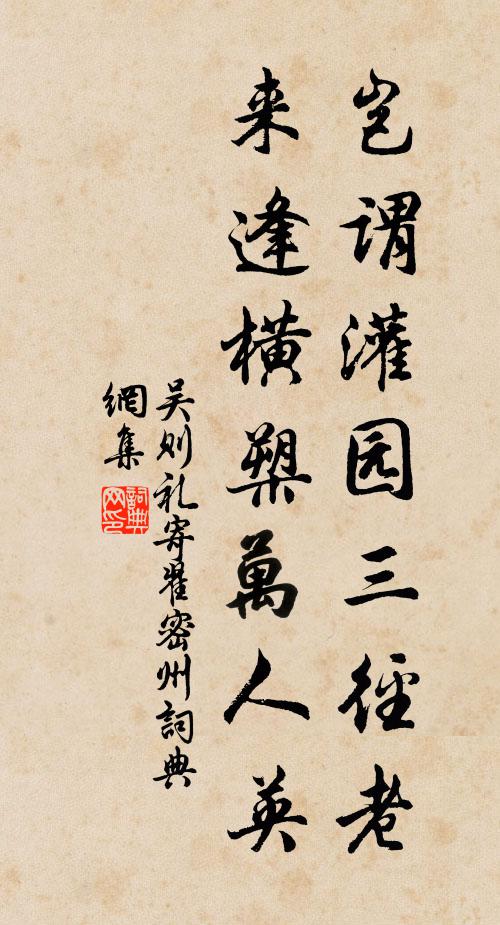 岂谓灌园三径老
来逢横槊萬人英
吴则礼寄翟密州詞典
網集
詞典
网印